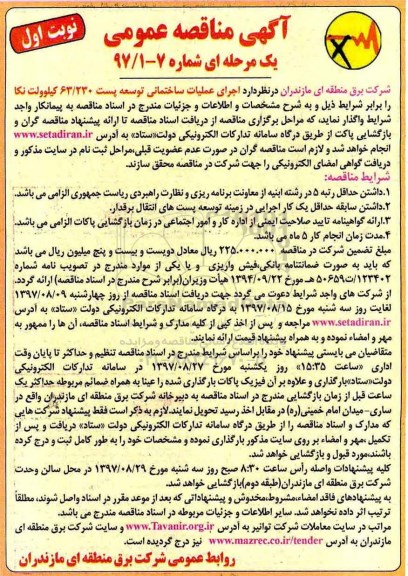 آگهی مناقصه عمومی
نوبت اول
یک مرحله ای شماره ۷-۹۷/۱
شرکت برق منطقه ای مازندران درنظردارد اجرای عملیات ساختمانی توسعه پست ۶۳/۲۳۰ کیلوولت نکا
را برابر شرایط ذیل و به شرح مشخصات و اطلاعات و جزئیات مندرج در اسناد مناقصه به پیمانکار واجد
شرایط واگذار نماید، که مراحل برگزاری مناقصه از دریافت اسناد مناقصه تا ارائه پیشنهاد مناقصه گران و
بازگشایی پاکت از طریق درگاه سامانه تدارکات الکترونیکی دولت«ستاد» به آدرس www.setadiran.ir
انجام خواهد شد و لازم است مناقصه گران در صورت عدم عضویت قبلی،مراحل ثبت نام در سایت مذکور و
دریافت گواهی امضای الکترونیکی را جهت شرکت در مناقصه محقق سازند.
شرایط مناقصه:
۱.داشتن حداقل رتبه ۵ در رشته ابنیه از معاونت برنامه ریزی و نظارت راهبردی ریاست جمهوری الزامی می باشد.
۲.داشتن سابقه حداقل یک کار اجرایی در زمینه توسعه پست های انتقال برقدار.
۳.ارائه گواهینامه تایید صلاحیت ایمنی از اداره کار و امور اجتماعی در زمان بازگشایی پاکات الزامی می باشد.
۴.مدت زمان انجام کار ۵ ماه می باشد.
مبلغ تضمین شرکت در مناقصه ۲۲۵.۰۰۰.۰۰۰ ریال معادل دویست و بیست و پنج میلیون ریال می باشد
که باید به صورت ضمانتنامه بانکی،فیش واریزی و یا یکی از موارد مندرج در تصویب نامه شماره
۱۲۳۴۰۲/ت۵۰۶۵۹ هـ مورخ ۱۳۹۴/۰۹/۲۲ هیأت وزیران(برابر شرح مندرج در اسناد مناقصه) ارائه گردد.
از شرکت های واجد شرایط دعوت می گردد جهت دریافت اسناد مناقصه از روز چهارشنبه ۱۳۹۷/۰۸/۰۹
لغایت روز سه شنبه مورخ ۱۳۹۷/۰۸/۱۵ به درگاه سامانه تدارکات الکترونیکی دولت «ستاد» به آدرس
www.setadiran.ir مراجعه و پس از اخذ کپی از کلیه مدارک و شرایط اسناد مناقصه، آن ها را ممهور به
مهر و امضاء نموده و به همراه پیشنهاد قیمت ارائه نمایند.
متقاضیان می بایستی پیشنهاد خود را براساس شرایط مندرج در اسناد مناقصه تنظیم و حداکثر تا پایان وقت
اداری «ساعت ۱۵:۳۵» روز یکشنبه مورخ ۱۳۹۷/۰۸/۲۷ در سامانه تدارکات الکترونیکی
دولت«ستاد»بارگذاری و علاوه بر آن فیزیک پاکات بارگذاری شده را عینا به همراه ضمائم مربوطه حداکثر یک
ساعت قبل از زمان بازگشایی مندرج در اسناد مناقصه به دبیرخانه شرکت برق منطقه ای مازندران واقع در
ساری-میدان امام خمینی(ره) در مقابل اخذ رسید تحویل نمایند.لازم به ذکر است فقط پیشنهاد شرکت هایی
که مدارک و اسناد مناقصه را از طریق درگاه سامانه تدارکات الکترونیکی دولت «ستاد» دریافت و پس از
تکمیل،مهر و امضاء بر روی سایت مذکور بارگذاری نموده و مشخصات خود را به طور کامل ثبت و درج کرده
باشند،مورد قبول و بازگشایی خواهد شد.
کلیه پیشنهادات واصله رأس ساعت ۸:۳۰ صبح روز سه شنبه مورخ ۱۳۹۷/۰۸/۲۹ در محل سالن وحدت
شرکت برق منطقه ای مازندران(طبقه دوم)بازگشایی خواهد شد.
به پیشنهادهای فاقد امضاء،مشروط،مخدوش و پیشنهاداتی که بعد از موعد مقرر در اسناد واصل شوند، مطلقاً
ترتیب اثر داده نخواهد شد. سایر اطلاعات و جزئیات مربوطه در اسناد مناقصه مندرج می باشد.
مراتب در سایت معاملات شرکت توانیر به آدرس www.Tavanir.org.ir و سایت شرکت برق منطقه ای
مازندران به آدرس www.mazrec.co.ir/tender نیز درج گردیده است.
روابط عمومی شرکت برق منطقه ای مازندران